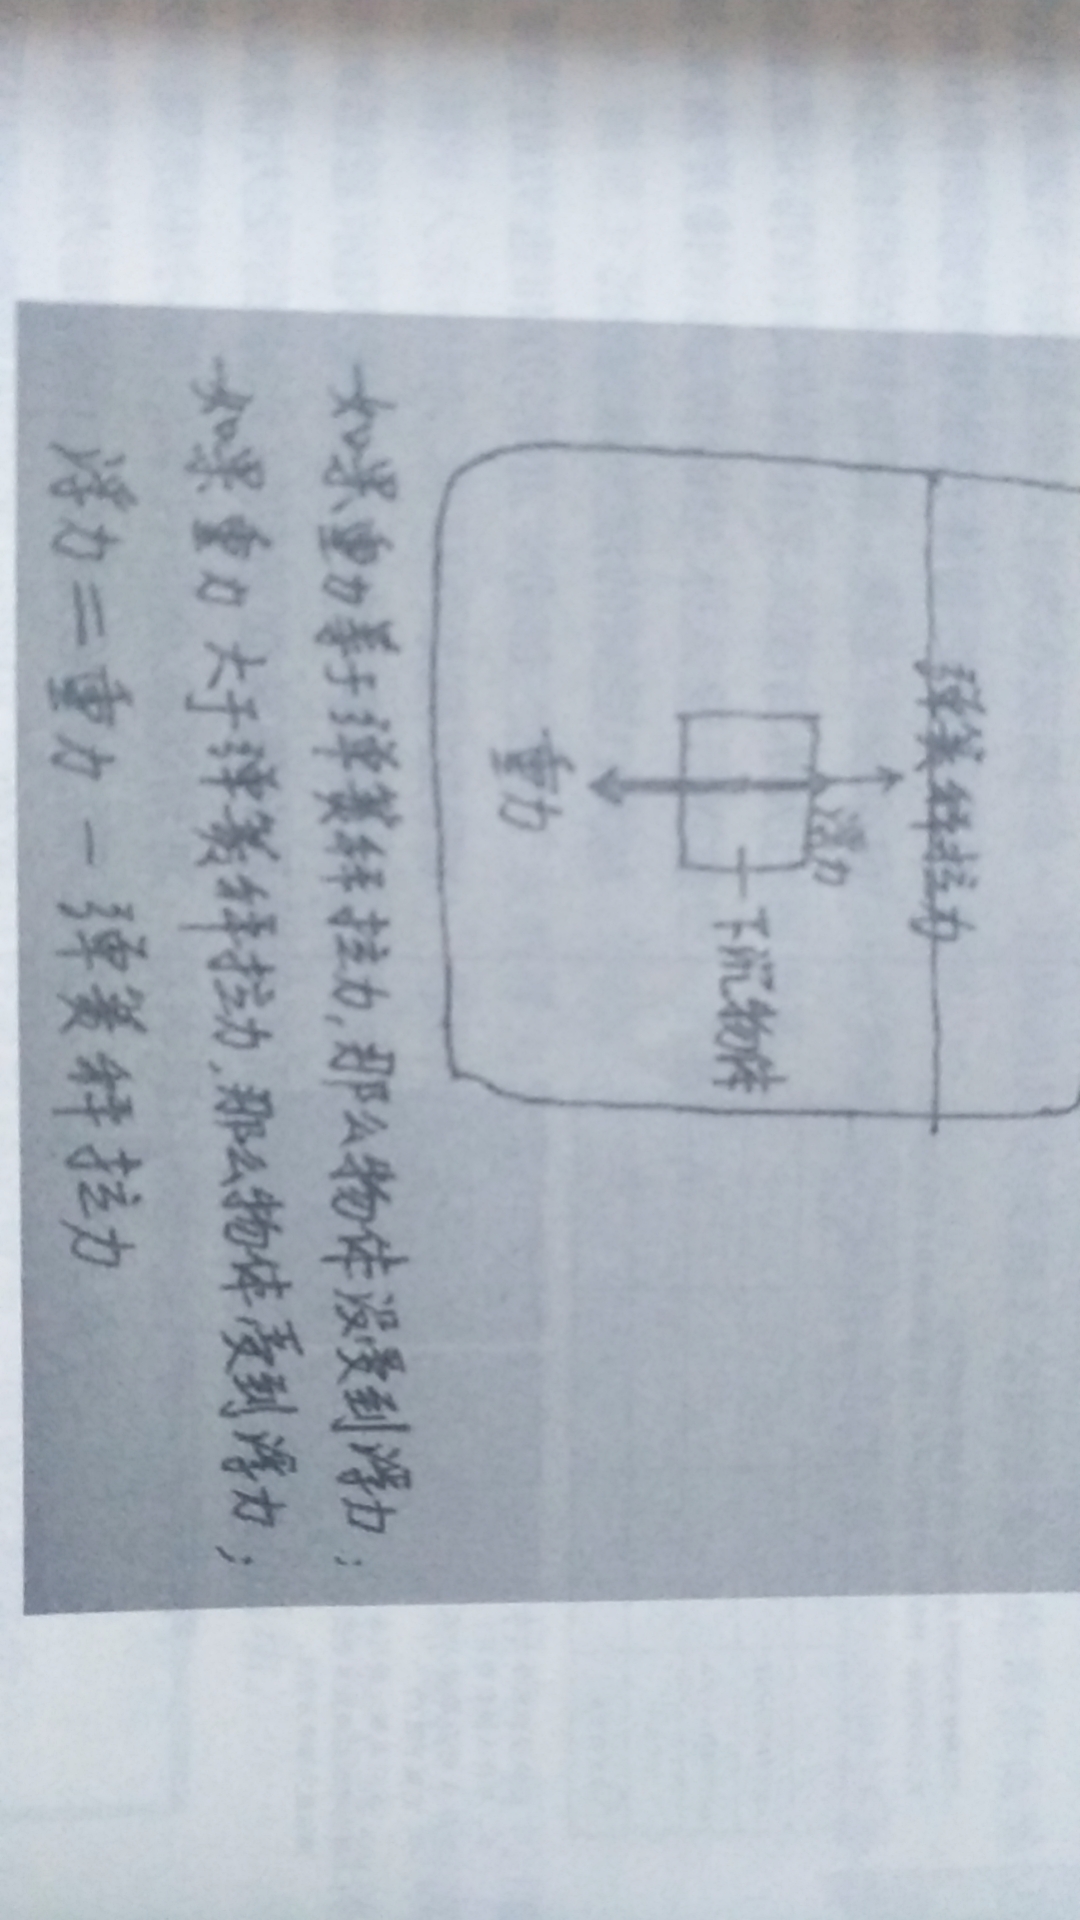 弹簧秤拉力
浮力
下沉物体
重力
如果重力等于弹簧秤拉力,那么物体没受到浮力;
如果重力大于弹簧秤拉力,那么物体受到浮力;
浮力=重力-弹簧秤拉力